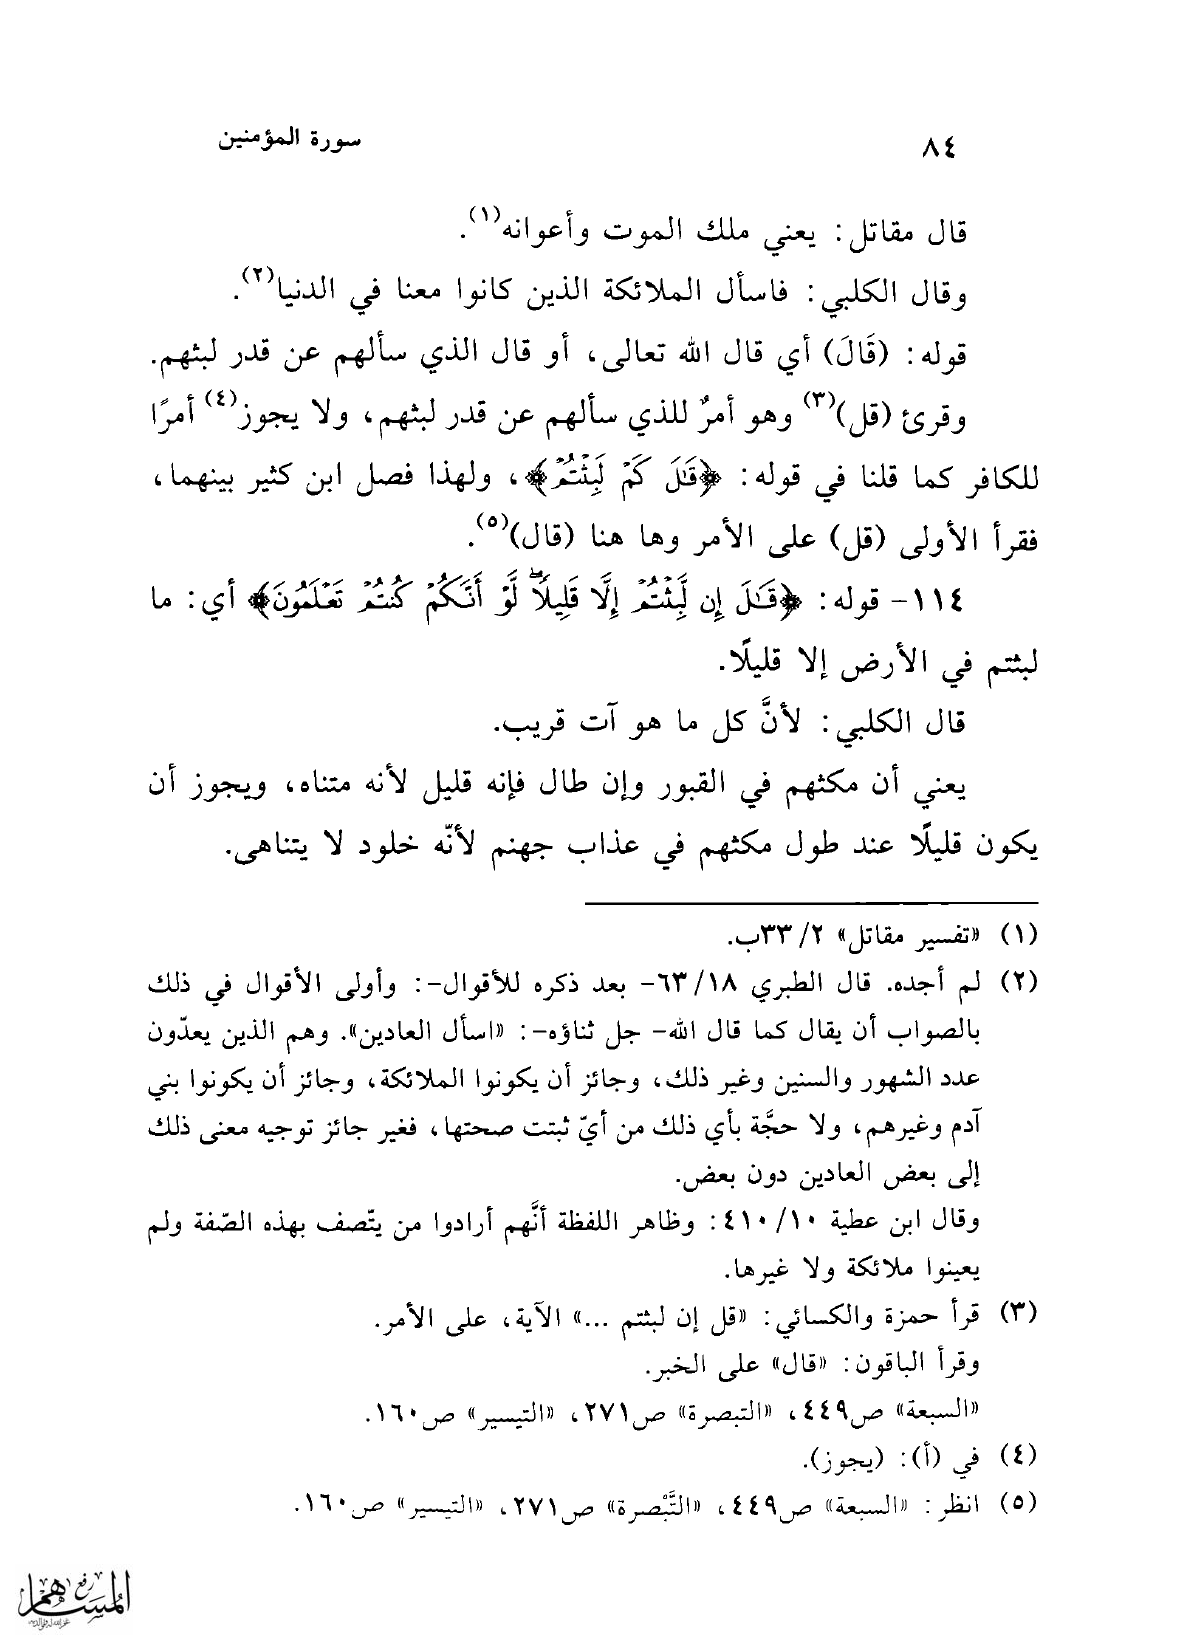 ٨٤
سورة المؤمنين
قال مقاتل: يعني ملك الموت وأعوانه(١).
وقال الكلبي: فاسأل الملائكة الذين كانوا معنا في الدنيا(٢).
قوله: (قَالَ) أي قال الله تعالى، أو قال الذي سألهم عن قدر لبثهم.
وقرئ (قل)(٣) وهو أمرٌ للذي سألهم عن قدر لبثهم، ولا يجوز(٤) أمرًا
للكافر كما قلنا في قوله: ﴿قَٰلَ كَمْ لَبِثْتُمْ﴾، ولهذا فصل ابن كثير بينهما،
فقرأ الأولى (قل) على الأمر وها هنا (قال)(٥).
١١٤- قوله: ﴿قَٰلَ إِن لَّبِثْتُمْ إِلَّا قَلِيلًا ۖ لَّوْ أَنَّكُمْ كُنتُمْ تَعْلَمُونَ﴾ أي: ما
لبثتم في الأرض إلا قليلًا.
قال الكلبي: لأنَّ كل ما هو آت قريب.
يعني أن مكثهم في القبور وإن طال فإنه قليل لأنه متناه، ويجوز أن
يكون قليلًا عند طول مكثهم في عذاب جهنم لأنّه خلود لا يتناهى.
(١) «تفسير مقاتل» ٢/ ٣٣ب.
(٢) لم أجده. قال الطبري ١٨/ ٦٣- بعد ذكره للأقوال-: وأولى الأقوال في ذلك
بالصواب أن يقال كما قال الله- جل ثناؤه-: «اسأل العادين». وهم الذين يعدّون
عدد الشهور والسنين وغير ذلك، وجائز أن يكونوا الملائكة، وجائز أن يكونوا بني
آدم وغيرهم، ولا حجَّة بأي ذلك من أيّ ثبتت صحتها، فغير جائز توجيه معنى ذلك
إلى بعض العادين دون بعض.
وقال ابن عطية ١٠/ ٤١٠: وظاهر اللفظة أنَّهم أرادوا من يتّصف بهذه الصّفة ولم
يعينوا ملائكة ولا غيرها.
(٣) قرأ حمزة والكسائي: «قل إن لبثتم ...» الآية، على الأمر.
وقرأ الباقون: «قال» على الخبر.
«السبعة» ص٤٤٩، «التبصرة» ص٢٧١، «التيسير» ص١٦٠.
(٤) في (أ): (يجوز).
(٥) انظر: «السبعة» ص٤٤٩، «التَّبْصرة» ص٢٧١، «التيسير» ص١٦٠.